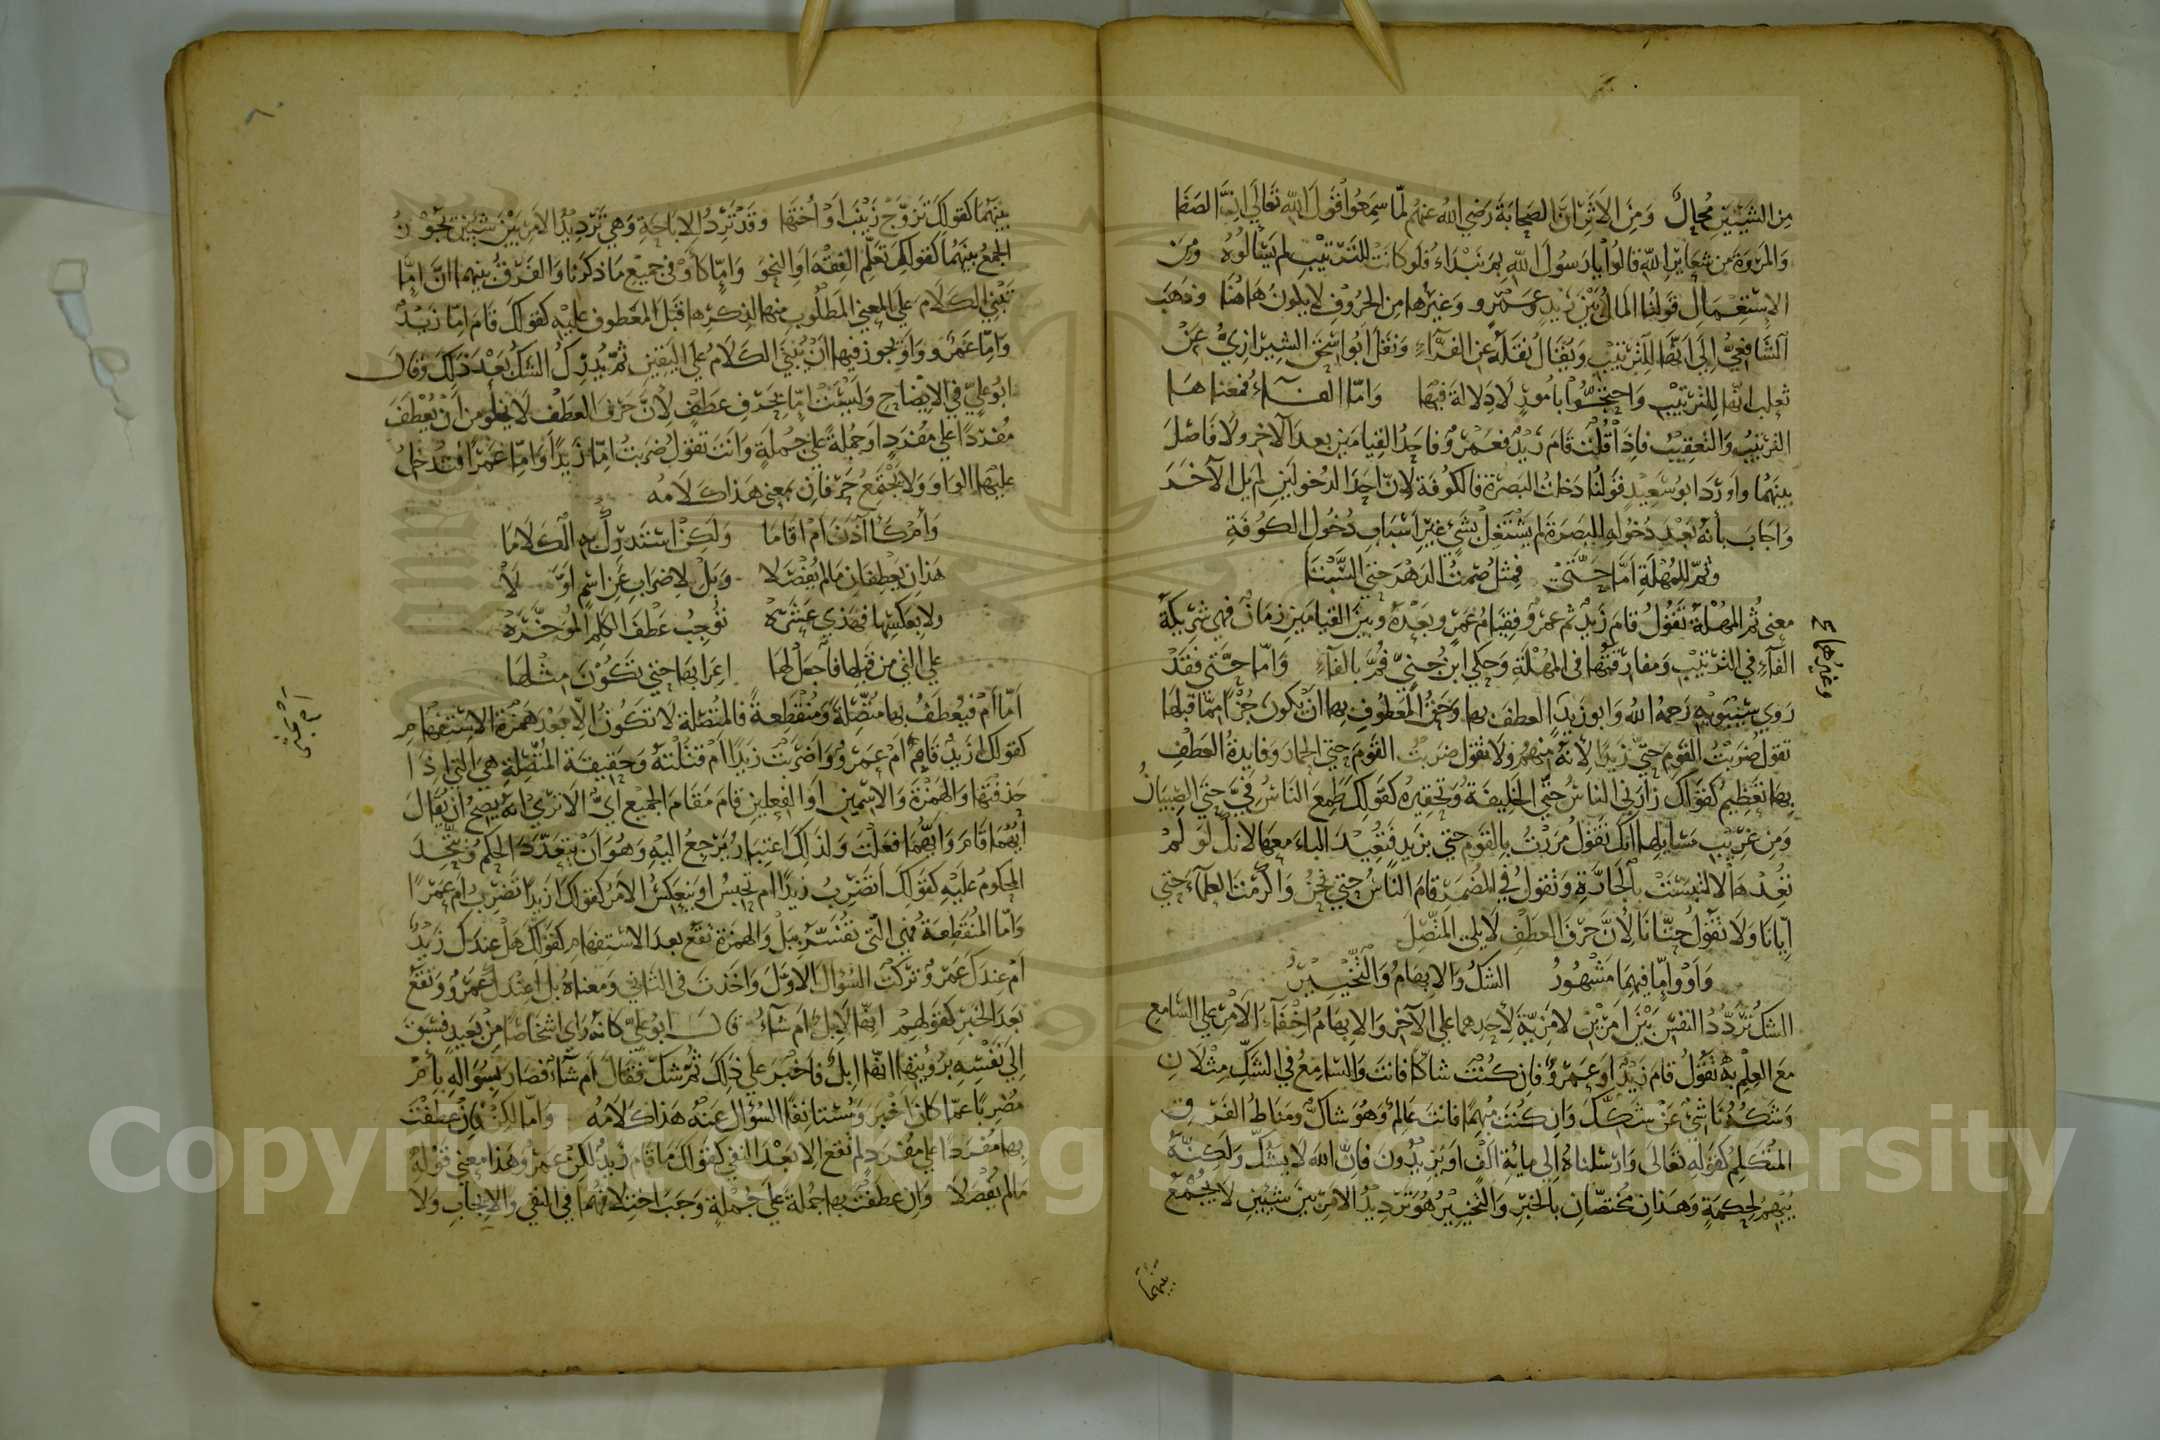 من الشيئين محال ومن الاثر ان الصحابة رضي الله عنهم لما سمعوا قول الله تعالى ان الصفا
والمروة من شعاير الله قالوا يا رسول الله بم نبداء فلو كانت للترتيب لم يسالوه ومن
الاستعمال قولنا المال بين زيد وعمرو وغيرها من الحروف لا يكون هاهنا وذهب
الشافعي الى انها للترتيب ويقال نقله عن الفراء ونقل ابو اسحق الشيرازي عن
ثعلب انها للترتيب واحتجوا بامور لا دلالة فيها واما الفاء فمعناها
الترتيب والتعقيب فاذا قلت قام زيد فعمرو فاحد القيامين بعد الاخر ولا فاصل
بينهما واورد ابو سعيد قولنا دخلت البصرة فالكوفة لان احد الدخولين لم يل الآخر
واجاب بأنه بعد دخوله للبصرة لم يشتغل بشئ غير اسباب دخول الكوفة
وثم للمهلة اما حتى فمثل صمت الدهر حتى السبتا
معنى ثم المهلة تقول قام زيد ثم عمرو فقيام عمرو بعده وبين القيامين زمان فهي شريكة
الفاء في الترتيب ومفارقتها في المهلة وحكى ابن جني فم بالفاء واما حتى فقد
روى سيبويه رحمه الله وابو زيد العطف بها وحق المعطوف بها ان يكون جزءا مما قبلها
تقول ضربت القوم حتى زيدا لانه منهم ولا تقول ضربت القوم حتى الحمار وفايدة العطف
بها تعظيم كقولك زارني الناس حتى الخليفة وتحقيره كقولك طمع الناس في حتى الصبيان
ومن غريب مسايلها انك تقول مررت بالقوم حتى بزيد فتعيد الباء معها لانك لو لم
تعدها لالتبست بالجارة وتقول في المضمر قام الناس حتى نحن واكرمت العلماء حتى
ايانا ولا تقول حتانا لان حرف العطف لا يلي المتصل
واو واما فيهما مشهور الشك والابهام والتخيير
الشك تردد النفس بين امرين لا مزية لأحدهما على الآخر والابهام اخفاء الأمر على السامع
مع العلم به تقول قام زيد او عمرو فان كنت شاكا فانت والسامع في الشك مثلان
وشكه ناشئ عن شكك وان كنت مبهما فانت عالم وهو شاك ومناط الفرق
المتكلم كقوله تعالى وارسلناه الى ماية الف او يزيدون فان الله لا يشك ولكنه
يبهم لحكمة وهذان مختصان بالخبر والتخيير هو ترديد الامر بين شيئين لا يجمع
بينهما
وغيرها
بينهما كقولك تزوج زينب او أختها وقد ترد للاباحة وهي ترديد الامر بين شيئين يجوز
الجمع بينهما كقولك تعلم الفقه او النحو واما كأو في جميع ما ذكرنا والفرق بينهما ان اما
تبنى الكلام على المعنى المطلوب منها لذكرها قبل المعطوف عليه كقولك قام اما زيد
واما عمرو واو يجوز فيها ان يبنى الكلام على اليقين ثم يدرك الشك بعد ذلك وقال
ابو علي في الايضاح وليست اما بحرف عطف لان حرف العطف لا يخلو من ان يعطف
مفردا على مفرد او جملة على جملة وانت تقول ضربت اما زيدا واما عمرا فتدخل
عليها الواو ولا يجتمع حرفان بمعنى هذا كلامه
وأم كأأذن ام اقاما ولكن استدرك به الكلاما
هذان يعطفان ما لم يفصلا وبل لاضراب عن اسم اولا
ولا بعكسها فهذي عشره توجب عطف الكلم المؤخره
على التي من قبلها فاجعل لها اعرابها حتى تكون مثلها
اما أم فيعطف بها متصلة ومنقطعة فالمتصلة لا تكون الا بعد همزة الاستفهام
كقولك ازيد قايم ام عمرو واضربت زيدا ام قتلته وحقيقة المتصلة هي التي اذا
حذفتها والهمزة والاسمين او الفعلين قام مقام الجميع أي الا ترى انه يصح ان يقال
ايهما قام وايهما فعلت ولذلك اعتبار يرجع اليه وهو ان يتعدد الحكم ويتحد
المحكوم عليه كقولك اتضرب زيدا ام تحبس او ينعكس الامر كقولك ازيدا تضرب ام عمرا
واما المنقطعة فهي التي تفسر ببل والهمزة تقع بعد الاستفهام كقولك هل عندك زيد
ام عندك عمرو تركت السؤال الاول واخذت في الثاني ومعناه بل اعندك عمرو وتقع
بعد الخبر كقولهم انها لابل ام شاء قال ابو علي كانه راى اشخاصا من بعيد فسبق
الى نفسه برؤيتها انها ابل فاخبر على ذلك ثم شك فقال ام شاء فصار بسواله بأم
مضربا عما كان اخبر ومستانفا السؤال عنه هذا كلامه واما لكن فان عطفت
بها مفردا على مفرد لم تقع الا بعد النفي كقولك ما قام زيد لكن عمرو وهذا معنى قوله
ما لم يفصلا وان عطفت بها جملة على جملة وجب اختلافهما في النفي والايجاب ولا
Copyright © King Saud University